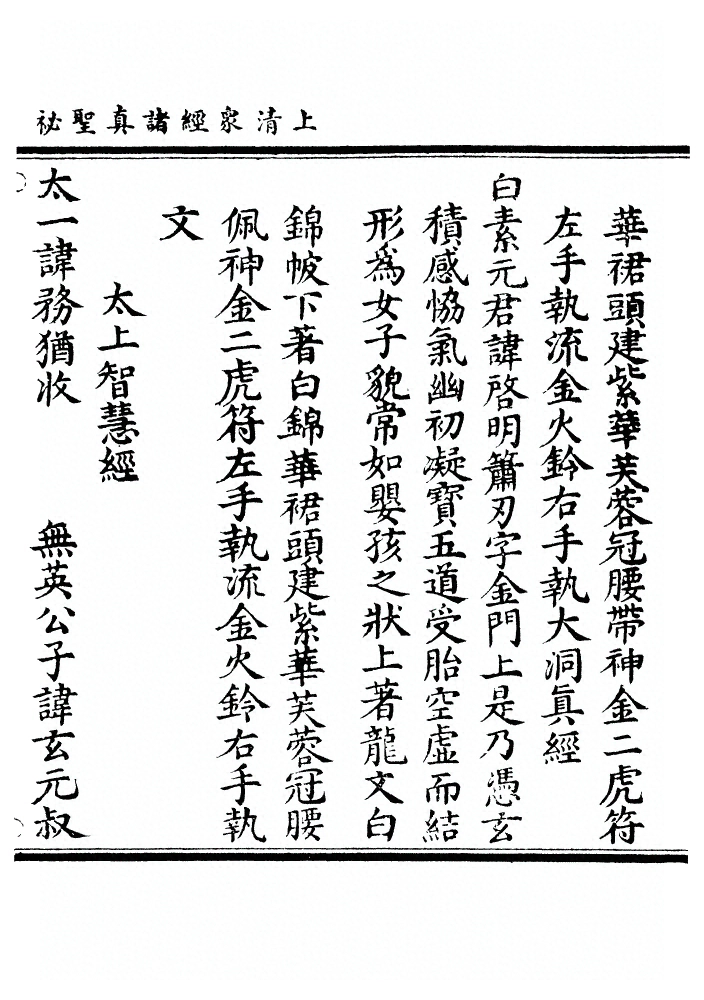 上清眾經諸真聖祕
華裙頭建紫華芙蓉冠腰帶神金二虎符
左手執流金火鈴右手執大洞真經
白素元君諱啓明簫刃字金門上是乃憑玄
積感恊氣幽初凝寶五道受胎空虛而結
形為女子貌常如嬰孩之狀上著龍文白
錦帔下著白錦華裙頭建紫華芙蓉冠腰
佩神金二虎符左手執流金火鈴右手執
文
太上智慧經
太一諱務猶收　無英公子諱玄元叔